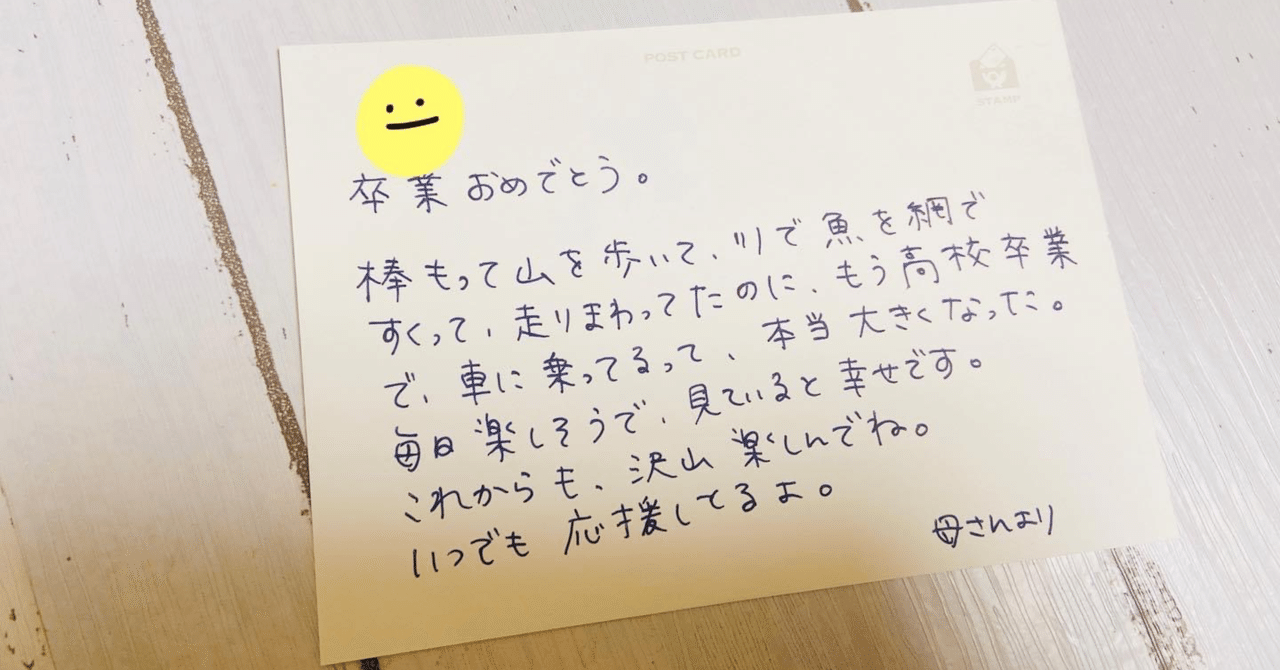 POST CARD
STAMP
卒業おめでとう。
棒もって山を歩いて、川で魚を網で
すくって、走りまわってたのに、もう高校卒業
で、車に乗ってるって、本当大きくなった。
毎日楽しそうで、見ていると幸せです。
これからも、沢山楽しんでね。
いつでも応援してるよ。
母さんより